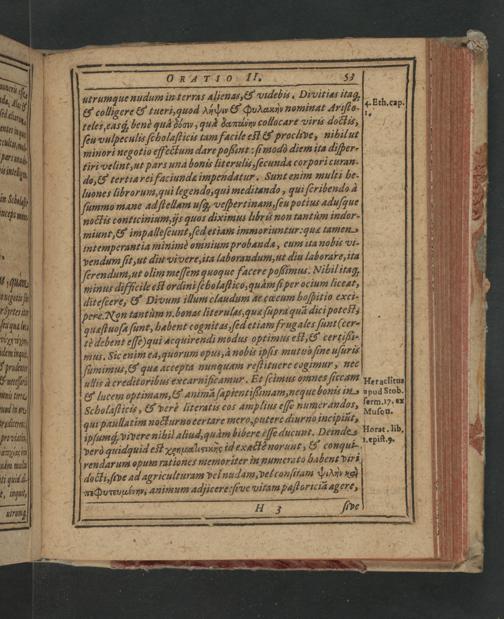 ORATIO II. 53
utrumque nudum in terras alienas, & videbis. Divitias itaq;
& colligere & tueri, quod λῆψιν & φυλακὴν nominat Aristo-
teles, easq; benè quà δόσιν, quà δαπάνην collocare viris doctis,
seu vulpeculis scholasticis tam facile est & proclive, nihil ut
minori negotio effectum dare poßint: si modò diem ita disper-
tiri velint, ut pars una bonis literulis, secunda corpori curan-
do, & tertia rei faciundæ impendatur. Sunt enim multi he-
luones librorum, qui legendo, qui meditando, qui scribendo à
summo mane ad stellam usq; vespertinam, seu potius adusque
noctis conticinium, ijs quos diximus librũ non tantùm indor-
miunt, & impallescunt, sed etiam immoriuntur: quæ tamen
intemperantia minimè omnium probanda, cum ita nobis vi-
vendum sit, ut diu vivere, ita laborandum, ut diu laborare, ita
serendum, ut olim messem quoque facere poßimus. Nihil itaq;
minus difficile est ordini scholastico, quàm si per ocium liceat,
ditescere, & Divum illum claudum ac cœcum hospitio exci-
pere. Non tantùm n. bonas literulas, quæ supra quã dici potest,
quæstuosæ sunt, habent cognitas, sed etiam frugales sunt (cer-
tè debent esse) qui acquirendi modus optimus est, & certißi-
mus. Sic enim ea, quorum opus, à nobis ipsis mutuò sine usuris
sumimus, & quæ accepta nunquam restituere cogimur, nec
ullis à creditoribus excarnificamur. Et scimus omnes siccam
& lucem optimam, & animã sapientißimam, neque bonis in
Scholasticis, & verè literatis eos amplius esse numerandos,
qui paullatim nocturno certare mero, putere diurno incipiũt,
ipsumq; vivere nihil aliud, quàm bibere esse ducunt. Deinde
verò quidquid est χρηματιστικῆς id exactè norunt, & conqui-
rendarum opum rationes memoriter in numerato habent viri
docti, sive ad agriculturam vel nudam, vel consitam ψιλὴν καὶ
πεφυτευμένην, animum adjicere: sive vitam pastoriciã agere,
H 3 sive
4. Eth. cap.
1.
Heraclitus
apud Stob.
serm. 17. ex
Muson.
Horat. lib.
1. epist. 9.